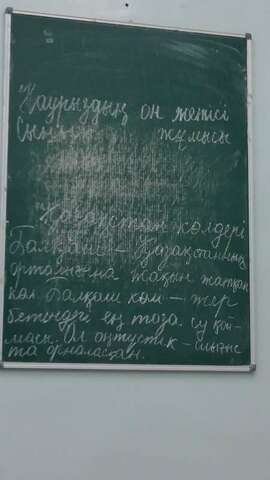 Наурыздың он жетісі
Сынып жұмысы
"Қазақстан көлдері
Балқаш – Қазақстанның
орталығына жақын жатқан
көл. Балқаш көлі – жер
бетіндегі ең таза су қой-
масы. Ол оңтүстік – шығыс
та орналасқан.